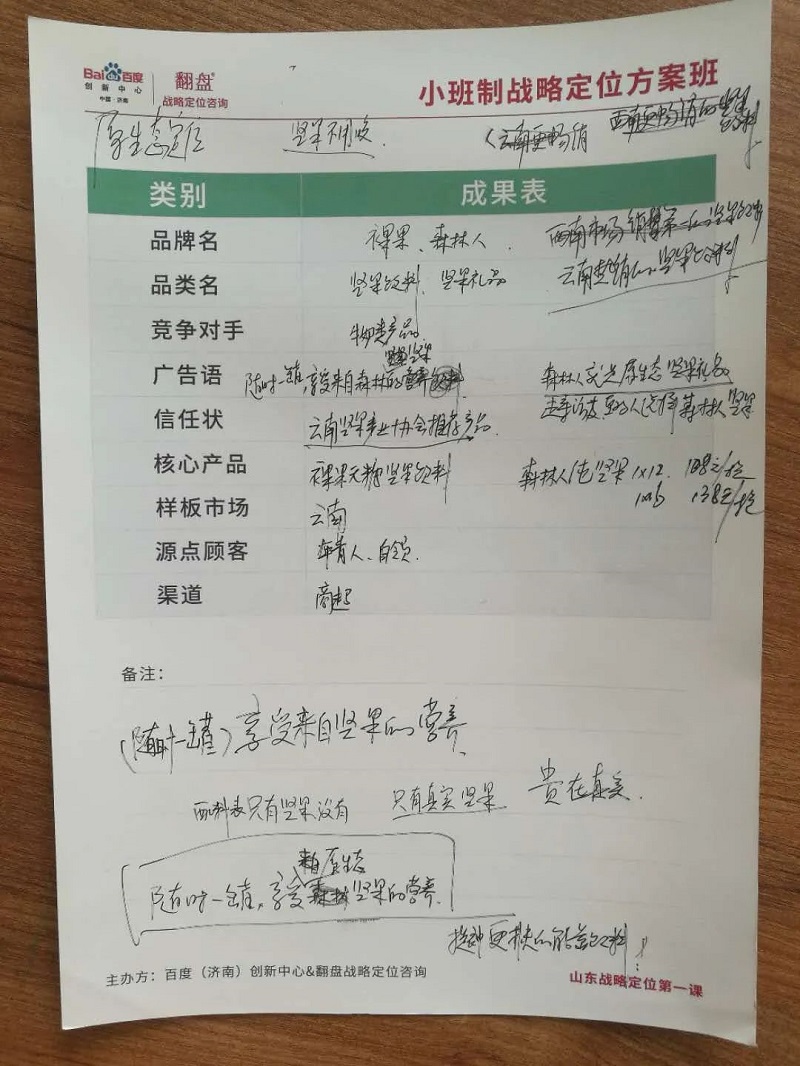 Bai百度 翻盘 小班制战略定位方案班
创新中心 战略定位咨询
中国·济南
原生态定位 坚果不用咬 (云南更畅销 西南更畅销的坚果饮料
类别 成果表
品牌名 裸果、森林人. 西南市场销量第一的坚果饮料
品类名 坚果饮料、坚果礼品 云南热销的坚果饮料
竞争对手 产品
广告语 随时一罐,享受来自森林的 森林人 原生态坚果礼品
信任状 云南坚果业协会推荐产品 选择森林人坚果
核心产品 裸果无糖坚果饮料 森林人 坚果 1×12. 108元/
1×15 138元/
样板市场 云南
源点顾客 年青人、白领.
渠道 商超
备注:
(随时一罐)享受来自坚果的营养
配料表只有坚果没有 只有真实坚果 贵在真实.
来自原生态
随时一罐,享受森林坚果的营养.
提神更持久的能量饮料!
主办方:百度(济南)创新中心&翻盘战略定位咨询 山东战略定位第一课